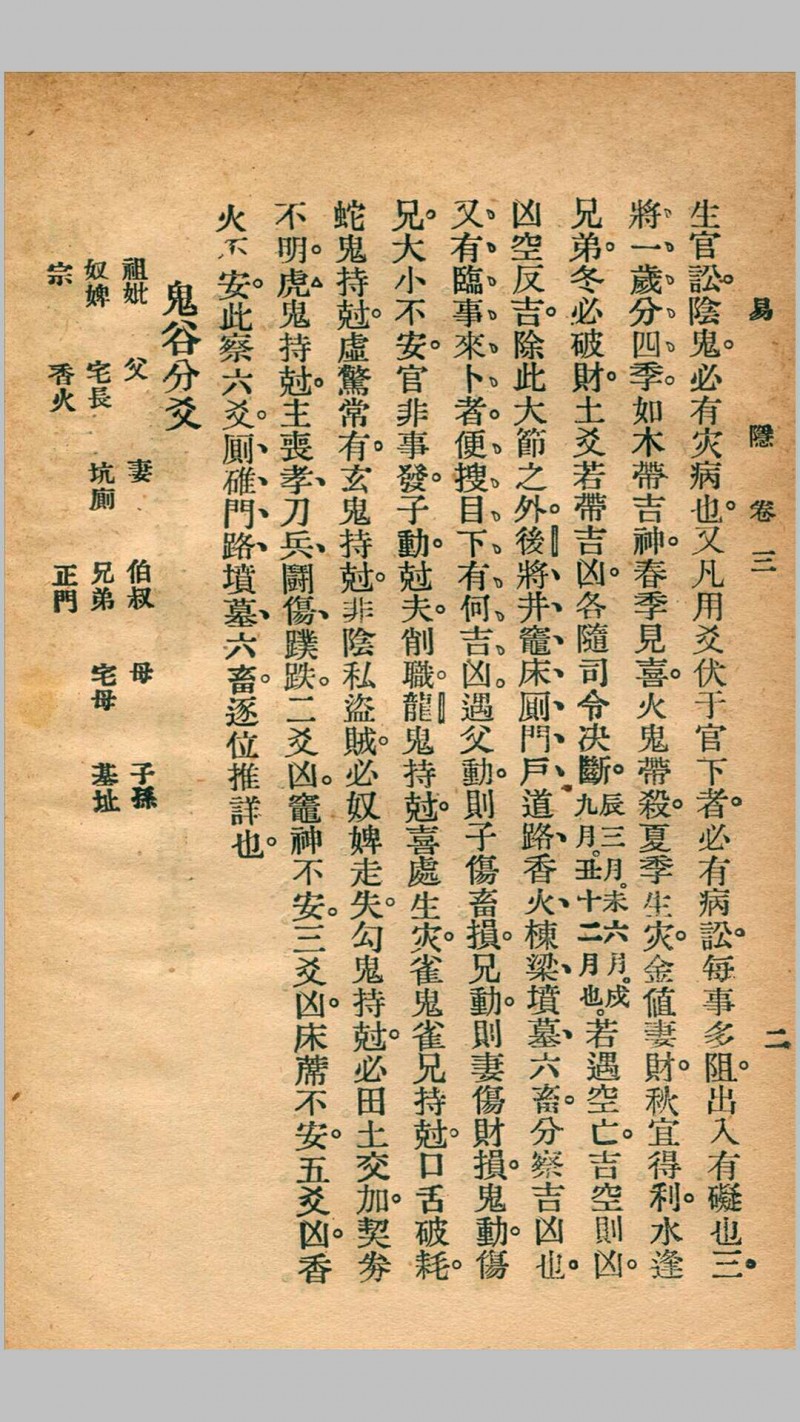 易　隱　卷三　二
生官訟。陰鬼。必有灾病也。又凡用爻伏于官下者。必有病訟。每事多阻。出入有礙也。三、
將、一、歲、分、四、季。如木帶吉神。春季見喜。火鬼帶殺。夏季生灾。金値妻財。秋宜得利。水逢
兄弟。冬必破財。土爻若帶吉凶。各隨司令决斷。辰三月。未六月。戌九月。丑十二月也。若遇空亡。吉空則凶。
凶空反吉。除此大節之外。後將井、竈、床、厠、門、戶、道路、香火、棟梁、墳墓、六畜。分察吉凶也。
又、有、臨、事、來、卜、者。便、搜、目、下、有、何、吉、凶。遇父動。則子傷畜損。兄動。則妻傷財損。鬼動。傷
兄。大小不安。官非事發。子動。尅夫。削職。龍鬼持尅。喜處生灾。雀鬼雀兄持尅。口舌破耗。
蛇鬼持尅。虛驚常有。玄鬼持尅。非陰私盜賊。必奴婢走失。勾鬼持尅。必田土交加。契劵
不明。虎鬼持尅。主喪孝、刀兵、鬬傷、蹼跌。二爻凶。竈神不安。三爻凶。床蓆不安。五爻凶。香
火不安。此察六爻。厠、碓、門、路、墳墓、六畜。逐位推詳也。
鬼谷分爻
祖妣　父　妻　伯叔　母　子孫
奴婢　宅長　坑厠　兄弟　宅母　基址
宗　香火　正門